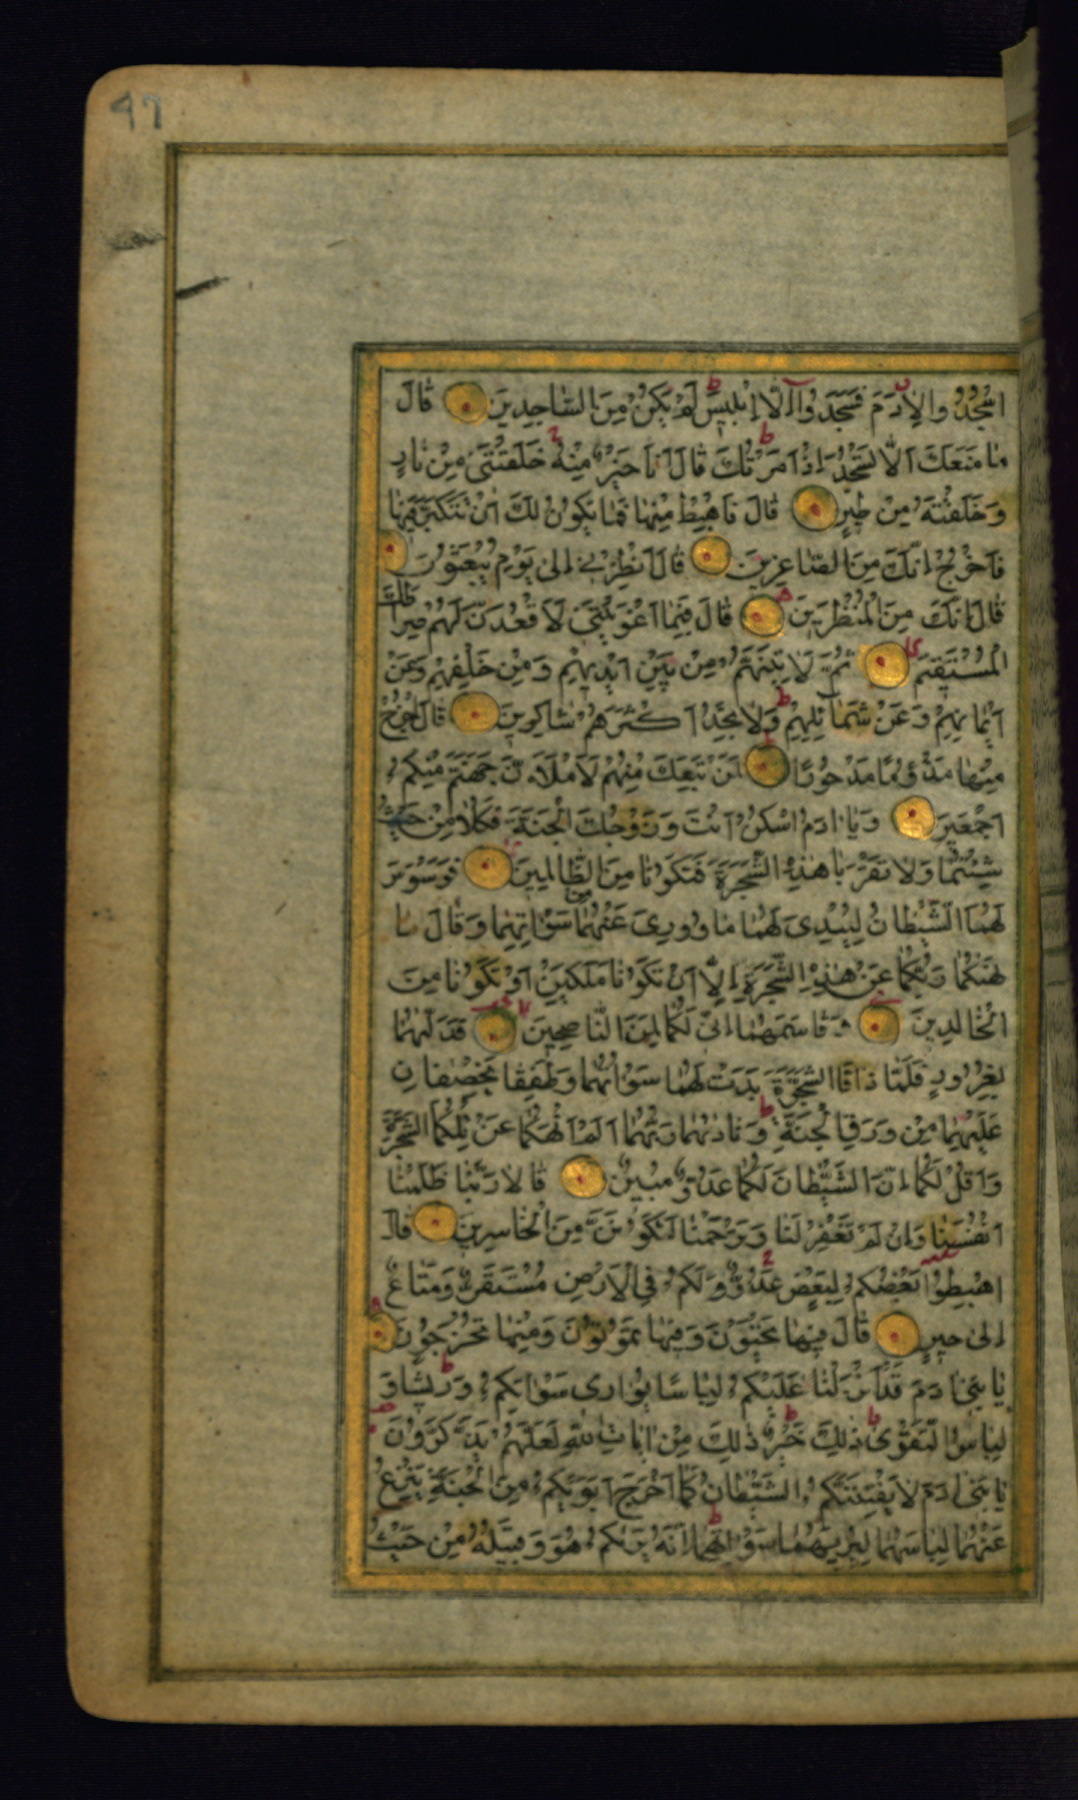 97
اسْجُدُوا لِاٰدَمَ فَسَجَدُوا اِلَّا اِبْلِيسَ لَمْ يَكُنْ مِنَ السَّاجِدِينَ قَالَ
مَا مَنَعَكَ اَلَّا تَسْجُدَ اِذْ اَمَرْتُكَ قَالَ اَنَا خَيْرٌ مِنْهُ خَلَقْتَنِى مِنْ نَارٍ
وَخَلَقْتَهُ مِنْ طِينٍ قَالَ فَاهْبِطْ مِنْهَا فَمَا يَكُونُ لَكَ اَنْ تَتَكَبَّرَ فِيهَا
فَاخْرُجْ اِنَّكَ مِنَ الصَّاغِرِينَ قَالَ اَنْظِرْنِى اِلٰى يَوْمِ يُبْعَثُونَ
قَالَ اِنَّكَ مِنَ الْمُنْظَرِينَ قَالَ فَبِمَا اَغْوَيْتَنِى لَاَقْعُدَنَّ لَهُمْ صِرَاطَكَ
الْمُسْتَقِيمَ ثُمَّ لَاٰتِيَنَّهُمْ مِنْ بَيْنِ اَيْدِيهِمْ وَمِنْ خَلْفِهِمْ وَعَنْ
اَيْمَانِهِمْ وَعَنْ شَمَآئِلِهِمْ وَلَا تَجِدُ اَكْثَرَهُمْ شَاكِرِينَ قَالَ اخْرُجْ
مِنْهَا مَذْؤُمًا مَدْحُورًا لَمَنْ تَبِعَكَ مِنْهُمْ لَاَمْلَاَنَّ جَهَنَّمَ مِنْكُمْ
اَجْمَعِينَ وَيَا اٰدَمُ اسْكُنْ اَنْتَ وَزَوْجُكَ الْجَنَّةَ فَكُلَا مِنْ حَيْثُ
شِئْتُمَا وَلَا تَقْرَبَا هٰذِهِ الشَّجَرَةَ فَتَكُونَا مِنَ الظَّالِمِينَ فَوَسْوَسَ
لَهُمَا الشَّيْطَانُ لِيُبْدِىَ لَهُمَا مَا وُورِىَ عَنْهُمَا مِنْ سَوْاٰتِهِمَا وَقَالَ مَا
نَهٰيكُمَا رَبُّكُمَا عَنْ هٰذِهِ الشَّجَرَةِ اِلَّا اَنْ تَكُونَا مَلَكَيْنِ اَوْ تَكُونَا مِنَ
الْخَالِدِينَ وَقَاسَمَهُمَا اِنِّى لَكُمَا لَمِنَ النَّاصِحِينَ فَدَلّٰيهُمَا
بِغُرُورٍ فَلَمَّا ذَاقَا الشَّجَرَةَ بَدَتْ لَهُمَا سَوْاٰتُهُمَا وَطَفِقَا يَخْصِفَانِ
عَلَيْهِمَا مِنْ وَرَقِ الْجَنَّةِ وَنَادٰيهُمَا رَبُّهُمَا اَلَمْ اَنْهَكُمَا عَنْ تِلْكُمَا الشَّجَرَةِ
وَاَقُلْ لَكُمَا اِنَّ الشَّيْطَانَ لَكُمَا عَدُوٌّ مُبِينٌ قَالَا رَبَّنَا ظَلَمْنَا
اَنْفُسَنَا وَاِنْ لَمْ تَغْفِرْ لَنَا وَتَرْحَمْنَا لَنَكُونَنَّ مِنَ الْخَاسِرِينَ قَالَ
اهْبِطُوا بَعْضُكُمْ لِبَعْضٍ عَدُوٌّ وَلَكُمْ فِى الْاَرْضِ مُسْتَقَرٌّ وَمَتَاعٌ
اِلٰى حِينٍ قَالَ فِيهَا تَحْيَوْنَ وَفِيهَا تَمُوتُونَ وَمِنْهَا تُخْرَجُونَ
يَا بَنِى اٰدَمَ قَدْ اَنْزَلْنَا عَلَيْكُمْ لِبَاسًا يُوَارِى سَوْاٰتِكُمْ وَرِيشًا وَ
لِبَاسُ التَّقْوٰى ذٰلِكَ خَيْرٌ ذٰلِكَ مِنْ اٰيَاتِ اللّٰهِ لَعَلَّهُمْ يَذَّكَّرُونَ
يَا بَنِى اٰدَمَ لَا يَفْتِنَنَّكُمُ الشَّيْطَانُ كَمَا اَخْرَجَ اَبَوَيْكُمْ مِنَ الْجَنَّةِ يَنْزِعُ
عَنْهُمَا لِبَاسَهُمَا لِيُرِيَهُمَا سَوْاٰتِهِمَا اِنَّهُ يَرٰيكُمْ هُوَ وَقَبِيلُهُ مِنْ حَيْثُ